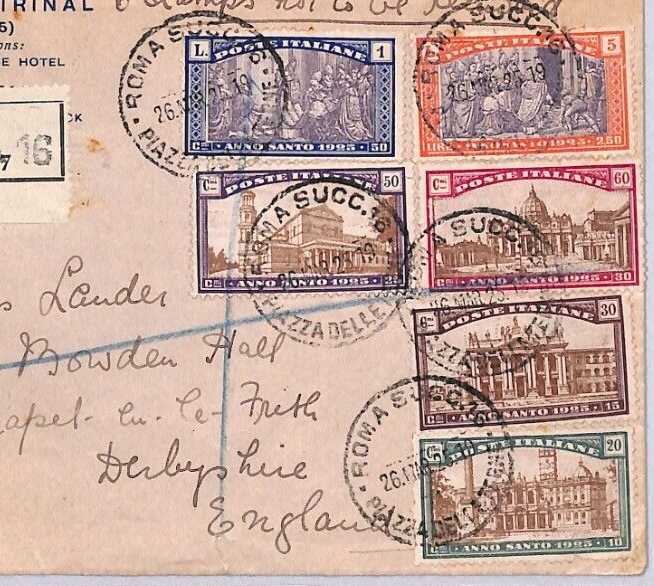 6 stamps not to be removed
IRINAL
5)
ons:
SE HOTEL
OK
7 16
L. POSTE ITALIANE 1
Cmi ANNO SANTO 1925 50
POSTE ITALIANE 5
LIRE ANNO SANTO 1925 2,50
Cmi POSTE ITALIANE 50
Cmi ANNO SANTO 1925 25
Cmi POSTE ITALIANE 60
Cmi ANNO SANTO 1925 30
Cmi POSTE ITALIANE 30
Cmi ANNO SANTO 1925 15
Cmi POSTE ITALIANE 20
Cmi ANNO SANTO 1925 10
ROMA SUCC. 16
26.MAR.25.19
PIAZZA DELLE
ROMA SUCC. 16
26.MAR.25-19
ROMA SUCC. 16
26.MAR.25-19
PIAZZA DELLE
ROMA SUCC. 16
26.MAR.25-19
PIAZZA DELLE
ROMA SUCC. 16
26.MAR.25-19
PIAZZA DELLE
s Lander
Bowden Hall
apel-en-le-Frith
Derbyshire
England